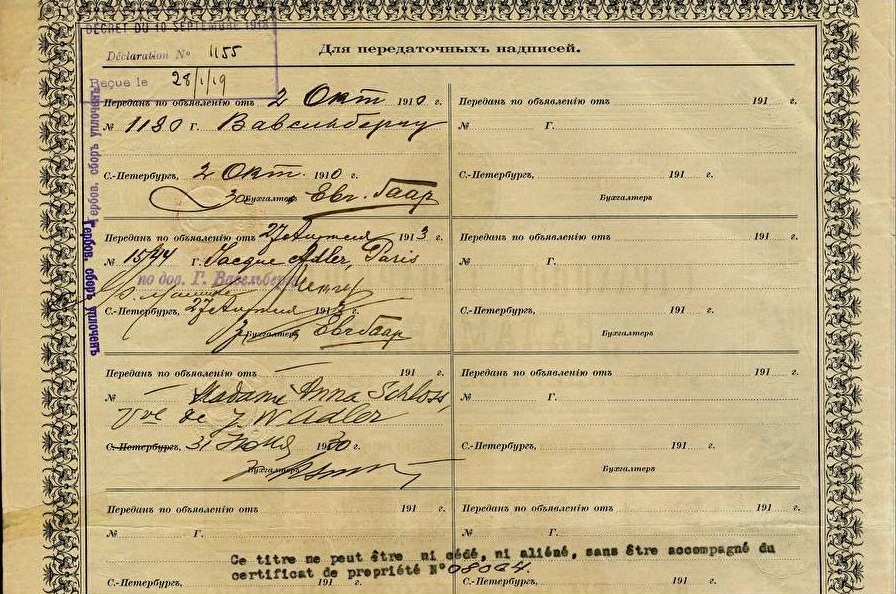 DÉCRET DU 10 SEPTEMBRE 1918
Déclaration No 1155
Reçue le 28/1/19
Для передаточныхъ надписей.
Гербов. сборъ уплоченъ
Гербов. сборъ уплоченъ
Переданъ по объявленію отъ 2 Окт 1910 г.
№ 1180 Г. Вавельбергу
С.-Петербургъ, 2 Окт. 1910 г.
За Бухгалтеръ Евг. Гаар
Переданъ по объявленію отъ 27 Апрѣля 1913 г.
№ 1544 Г. Jacque Adler Paris
по дов. Г. Вавельберга
С.-Петербургъ, 27 Апрѣля 1913 г.
Бухгалтеръ Евг Гаар
Переданъ по объявленію отъ — 191 г.
№ — Madame Anna Schloss,
Vve de J. W Adler
С.-Петербургъ, 31 1930 г.
Бухгалтеръ
Переданъ по объявленію отъ 191 г.
№ Г.
С.-Петербургъ, 191 г.
Переданъ по объявленію отъ 191 г.
№ Г.
С.-Петербургъ, 191 г.
Бухгалтеръ
Переданъ по объявленію отъ 191 г.
№ Г.
С.-Петербургъ, 191 г.
Бухгалтеръ
Переданъ по объявленію отъ 191 г.
№ Г.
С.-Петербургъ, 191 г.
Бухгалтеръ
Переданъ по объявленію отъ 191 г.
№ Г.
С.-Петербургъ, 191 г.
Ce titre ne peut être ni cédé, ni aliéné, sans être accompagné du
certificat de propriété N° 08094.